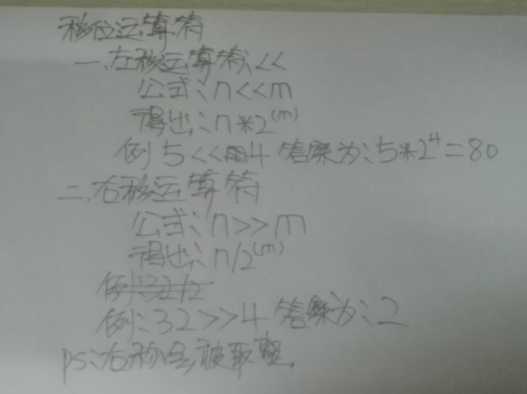 移位运算符
一、左移运算符、<<
公式:n<<m
得出:n*2^(m)
例 5<<4 答案为:5*2^4=80
二、右移运算符
公式:n>>m
得出:n/2^(m)
例:32/2
例:32>>4 答案为:2
ps:右移会被取整.